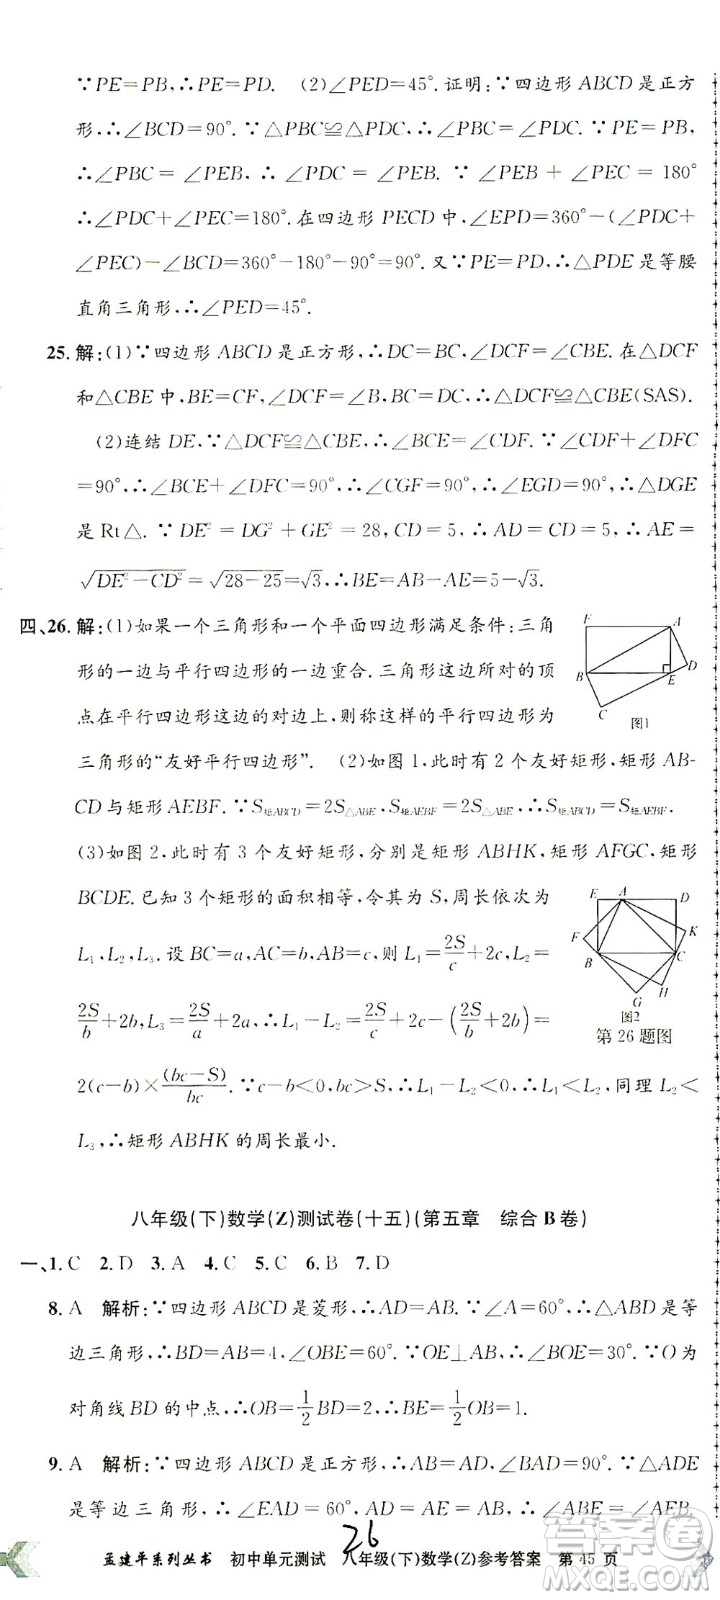 ∵PE=PB,∴PE=PD. (2)∠PED=45°.证明:∵四边形ABCD是正方
形,∴∠BCD=90°.∵△PBC≌△PDC,∴∠PBC=∠PDC.∵PE=PB,
∴∠PBC=∠PEB,∴∠PDC=∠PEB.∵∠PEB+∠PEC=180°
∴∠PDC+∠PEC=180°.在四边形PECD中,∠EPD=360°-(∠PDC+
∠PEC)-∠BCD=360°-180°-90°=90°.又∵PE=PD,∴△PDE是等腰
直角三角形,∴∠PED=45°.
25.解:(1)∵四边形ABCD是正方形,∴DC=BC,∠DCF=∠CBE.在△DCF
和△CBE中,BE=CF,∠DCF=∠CBE,DC=CB,∴△DCF≌△CBE(SAS).
(2)连结DE,∵△DCF≌△CBE,∴∠BCE=∠CDF.∵∠CDF+∠DFC
=90°,∴∠BCE+∠DFC=90°,∴∠CGF=90°,∴∠EGD=90°,∴△DGE
是Rt△.∵DE²=DG²+GE²=28,CD=5,∴AD=CD=5,∴AE=
√(DE²-CD²)=√(28-25)=√3,∴BE=AB-AE=5-√3.
四、26.解:(1)如果一个三角形和一个平面四边形满足条件:三角
形的一边与平行四边形的一边重合.三角形这边所对的顶
点在平行四边形这边的对边上,则称这样的平行四边形为
三角形的“友好平行四边形”. (2)如图1,此时有2个友好矩形,矩形AB-
CD与矩形AEBF.∵S矩ABCD=2S△ABE,S矩AEBF=2S△ABE,∴面积相等.
F A B E D C
图1
(3)如图2,此时有3个友好矩形,分别是矩形ABHK,矩形AFGC,矩形
BCDE.已知3个矩形的面积相等,令其为S,周长依次为
L₁,L₂,L₃.设BC=a,AC=b,AB=c,则L₁=2S/c+2c,L₂=
2S/b+2b,L₃=2S/a+2a,∴L₁-L₂=2S/c+2c-(2S/b+2b)=
2(c-b)×(bc-S)/bc.∵c-b<0,bc>S,∴L₁-L₂<0,∴L₁<L₂,同理L₂<
L₃,∴矩形ABHK的周长最小.
E A D F K B C H G
图2
第26题图
八年级(下)数学(Z)测试卷(十五)(第五章 综合B卷)
一、1.C 2.D 3.A 4.C 5.C 6.B 7.D
8.A 解析:∵四边形ABCD是菱形,∴AD=AB.∵∠A=60°,∴△ABD是等
边三角形,∴BD=AB=4,∠OBE=60°.∵OE⊥AB,∴∠BOE=30°.∵O为
对角线BD的中点,∴OB=1/2BD=2,∴BE=1/2OB=1.
9.A 解析:∵四边形ABCD是正方形,∴AB=AD,∠BAD=90°.∵△ADE
是等边三角形,∴∠EAD=60°,AD=AE,∴AB=AE,∴∠ABE=∠AEB.
孟建平系列丛书 初中单元测试 八年级(下)数学(Z)参考答案 第45页
26